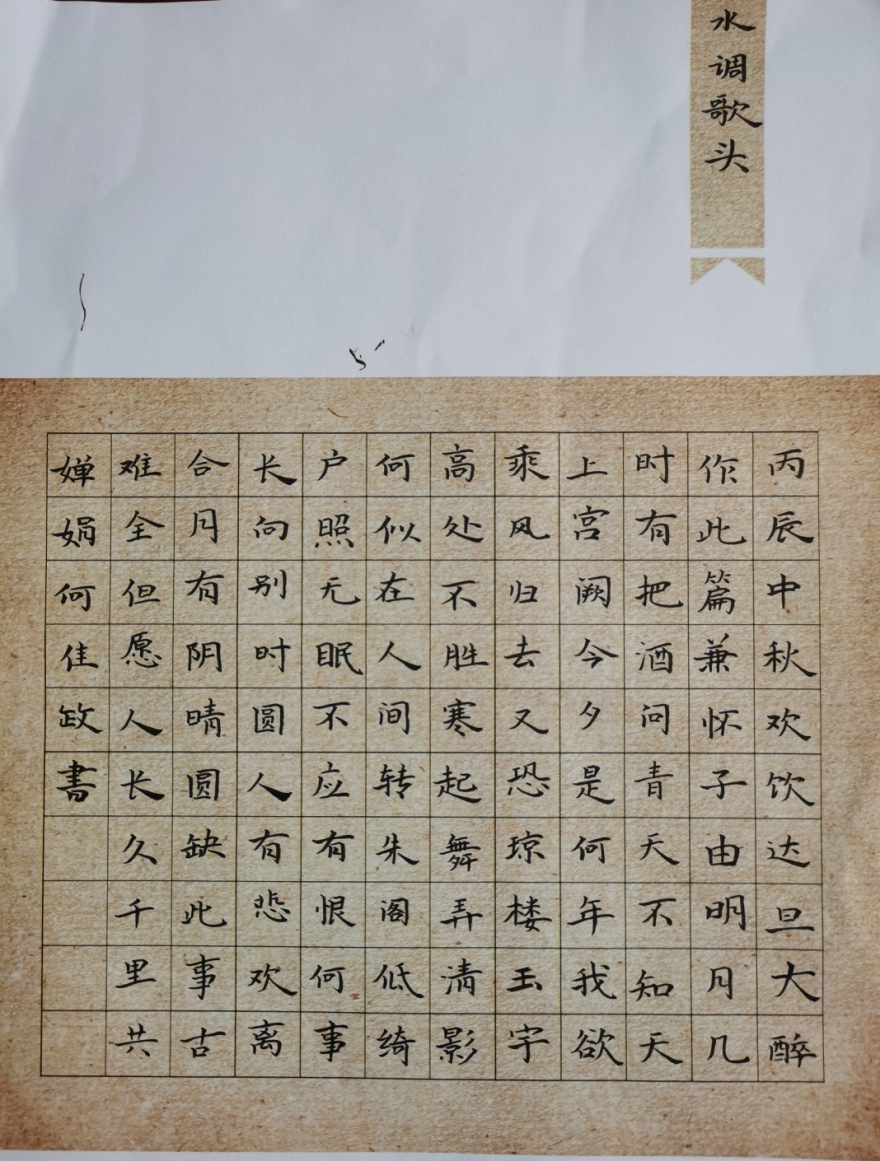 水调歌头
丙辰中秋欢饮达旦大醉
作此篇兼怀子由明月几
时有把酒问青天不知天
上宫阙今夕是何年我欲
乘风归去又恐琼楼玉宇
高处不胜寒起舞弄清影
何似在人间转朱阁低绮
户照无眠不应有恨何事
长向别时圆人有悲欢离
合月有阴晴圆缺此事古
难全但愿人长久千里共
婵娟何佳政書